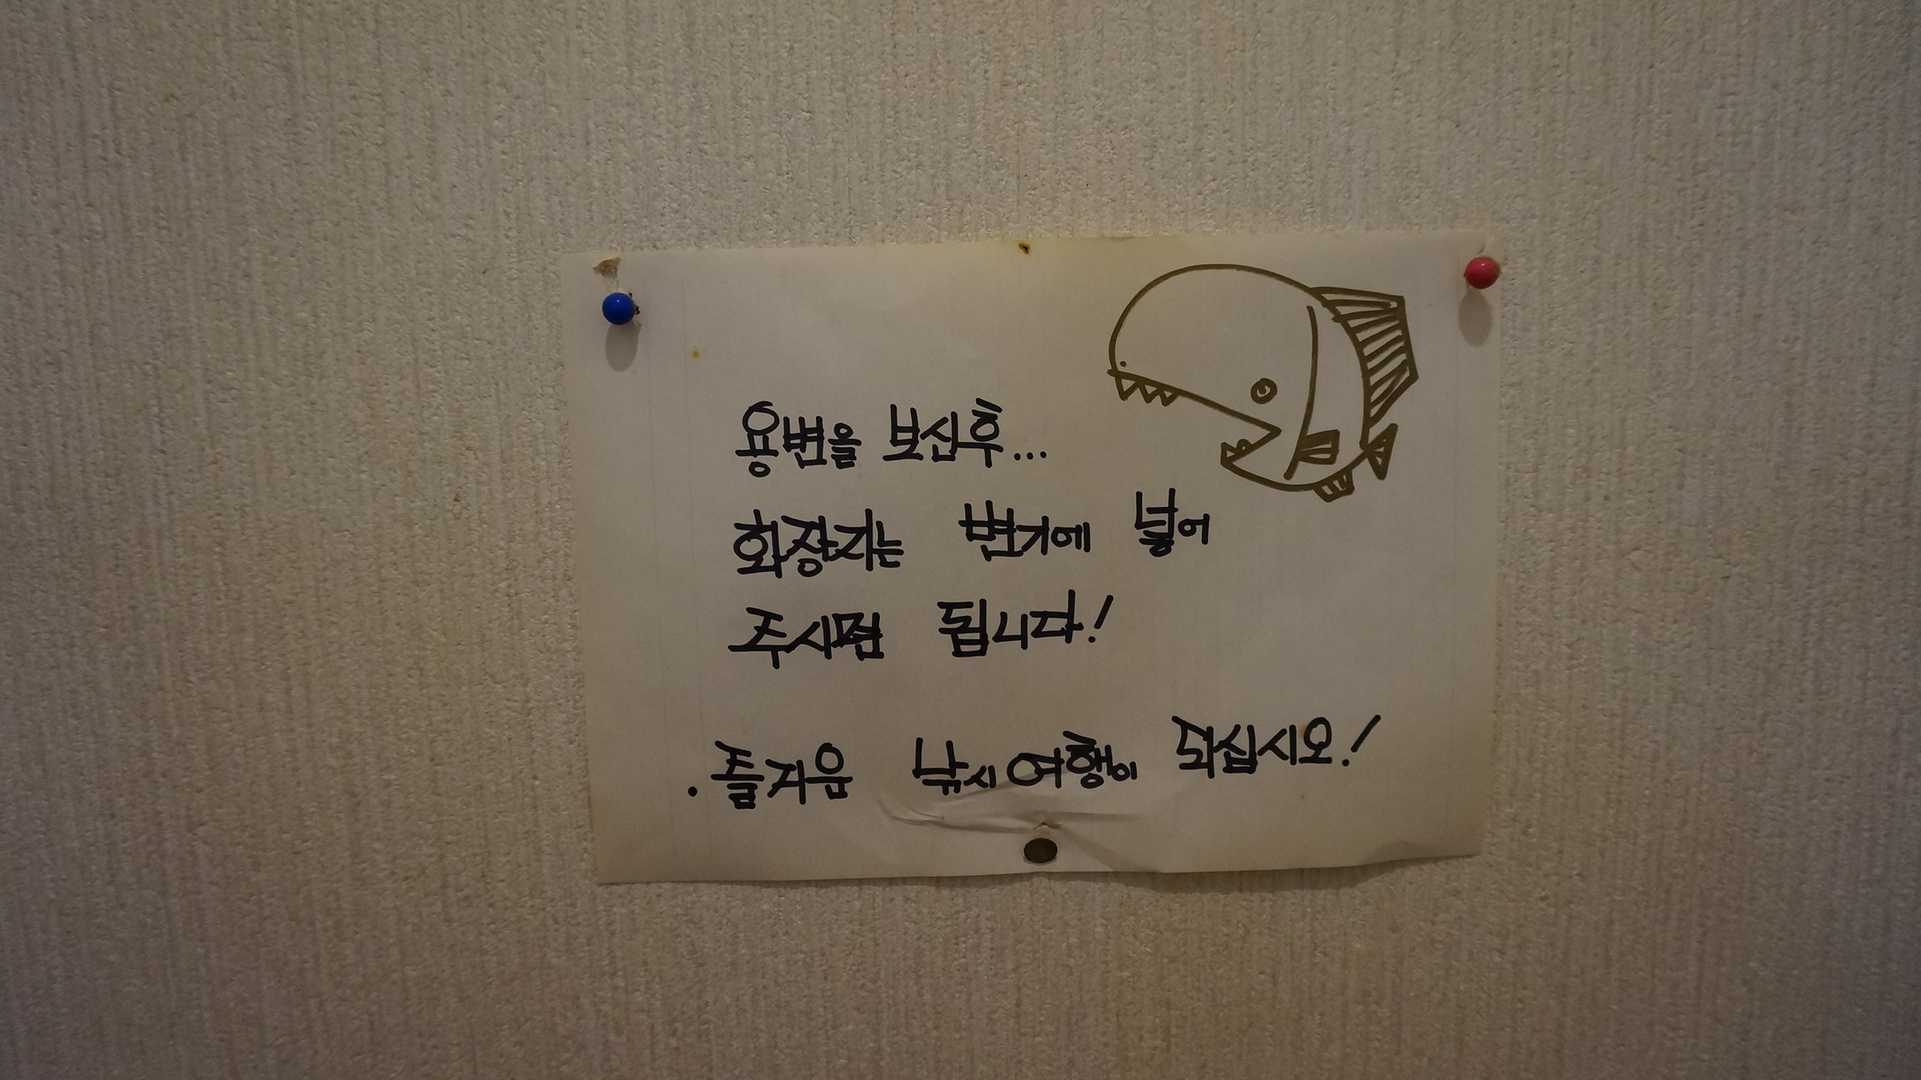 용변을 보신후...
화장지는 변기에 넣어
주시면 됩니다!
. 즐거운 낚시여행이 되십시오!